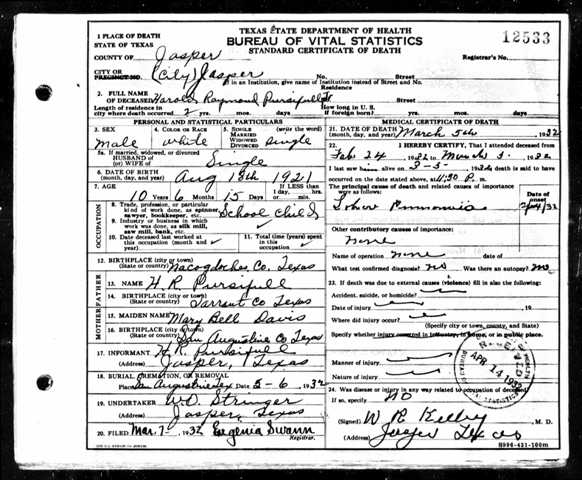 TEXAS STATE DEPARTMENT OF HEALTH
BUREAU OF VITAL STATISTICS
STANDARD CERTIFICATE OF DEATH
12533
Registrar's No.
1 PLACE OF DEATH
STATE OF TEXAS
COUNTY OF Jasper
CITY OR
PRECINCT NO. (City) Jasper No. Street
If in an Institution, give name of Institution instead of Street and No.
2. FULL NAME
OF DECEASED Harold Raymond Pursifull Residence Street
Length of residence in
city where death occurred 2 yrs. mos. days How long in U. S.
if foreign born? yrs. mos. days
PERSONAL AND STATISTICAL PARTICULARS
3. SEX Male
4. COLOR OR RACE white
5. SINGLE MARRIED WIDOWED DIVORCED (write the word) Single
5a. If married, widowed, or divorced
HUSBAND of
(or) WIFE of Single
6. DATE OF BIRTH
(month, day, and year) Aug 18th 1921
7. AGE 10 Years 6 Months 15 Days If LESS than 1 day, Hours Min.
OCCUPATION
8. Trade, profession, or particular
kind of work done, as spinner,
sawyer, bookkeeper, etc. School Child
9. Industry or business in which
work was done, as silk mill,
saw mill, bank, etc.
10. Date deceased last worked at
this occupation (month and year)
11. Total time (years)
spent in this occupation
12. BIRTHPLACE (city or town)
(State or country) Nacogdoches Co, Texas
FATHER
13. NAME H. R. Pursifull
14. BIRTHPLACE (city or town)
(State or country) Tarrant Co Texas
MOTHER
15. MAIDEN NAME Mary Bell Davis
16. BIRTHPLACE (city or town)
(State or country) San Augustine Co Texas
17. INFORMANT H. R. Pursifull
(Address) Jasper, Texas
18. BURIAL, CREMATION, OR REMOVAL
Place San Augustine Tex 3-6, 1932
19. UNDERTAKER W.O. Stringer
(Address) Jasper, Texas
20. FILED Mar. 7-, 1932 Eugenia Swann
Registrar.
MEDICAL CERTIFICATE OF DEATH
21. DATE OF DEATH
(month, day, and year) March 5th, 1932
22. I HEREBY CERTIFY, That I attended deceased from
Feb 24 1932 to March 3, 1932
I last saw him alive on 3-3- 1932 death is said to have
occurred on the date stated above, at 11:50 P. m.
The principal cause of death and related causes of importance
were as follows: Date of onset
Lobar Pneumonia 2/24/32
Other contributory causes of importance:
None
Name of operation none date of
What test confirmed diagnosis? no Was there an autopsy? no
23. If death was due to external causes (violence) fill in also the following:
Accident, suicide, or homicide?
Date of injury , 19
Where did injury occur?
(Specify city or town, county, and State)
Specify whether injury occurred in industry, in home, or in public place.
Manner of injury
Nature of injury
APR 14 1932
24. Was disease or injury in any way related to occupation of deceased?
If so, specify NO
(Signed) W R Kelley, M. D.
(Address) Jasper Texas
S994-431-100m